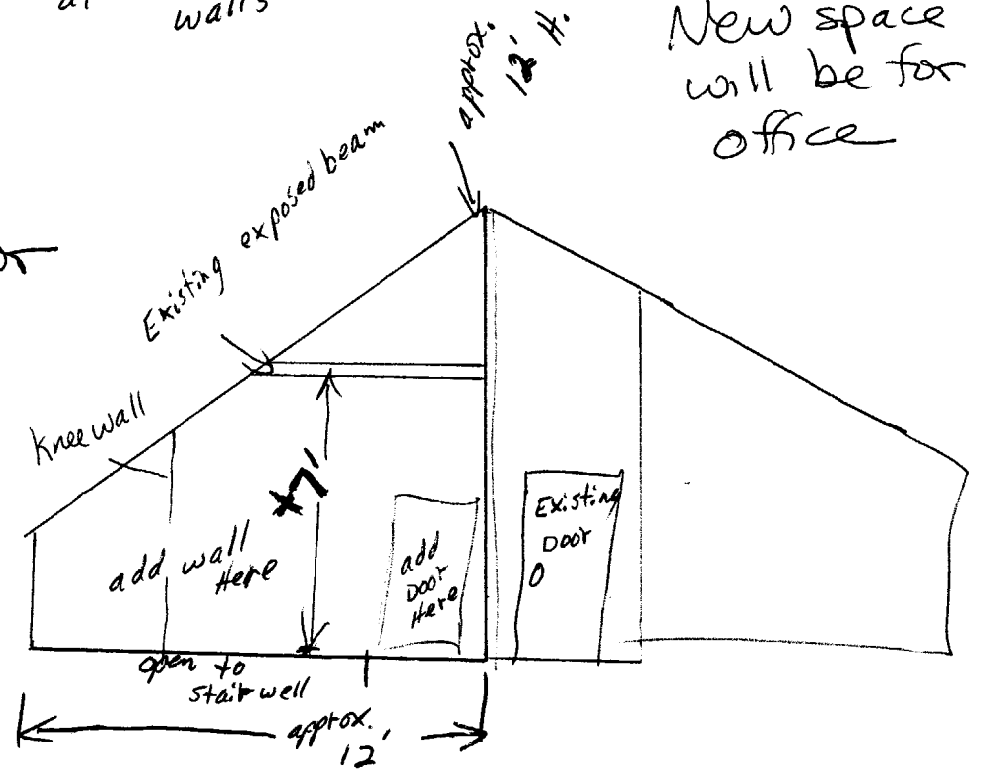 walls
New space
will be for
office
approx.
12' H.
Existing exposed beam
Knee wall
±7'
add wall
Here
add
Door
Here
Existing
Door
open to
stairwell
approx.
12'